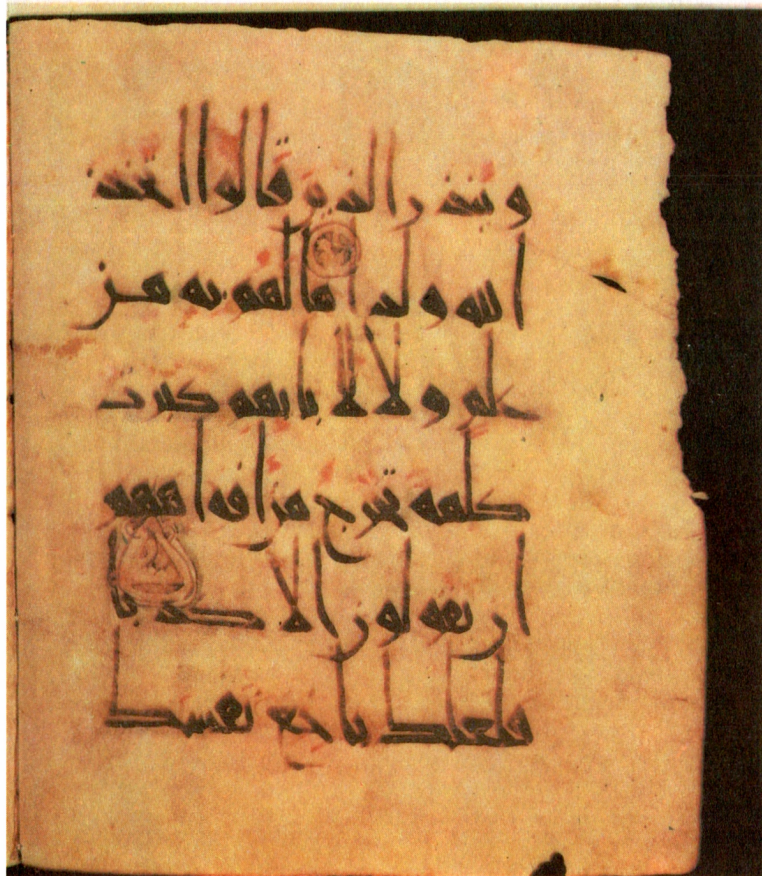 وينذر الذين قالوا اتخذ
الله ولدا ما لهم به من
علم ولا لابائهم كبرت
كلمة تخرج من افواههم
ان يقولون الا كذبا
فلعلك باخع نفسك